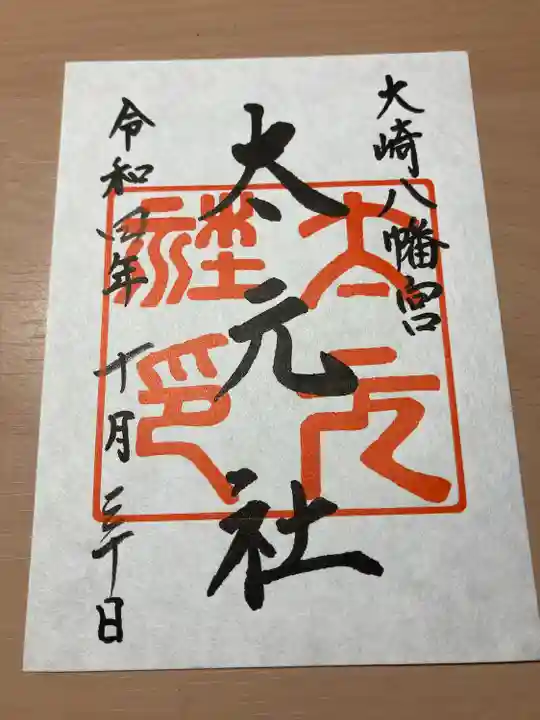 大崎八幡宮
太元社
太元社印
令和四年 十月 三十日